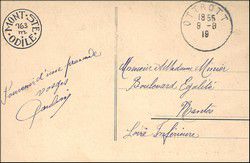 MONT-STE-ODILE
763 m.
OTTROTT
1855
9-8
19
Souvenir d'une promenade
vosges
Pauline
Monsieur et Madame Minier
Boulevard Egalité
Nantes
Loire Inférieure